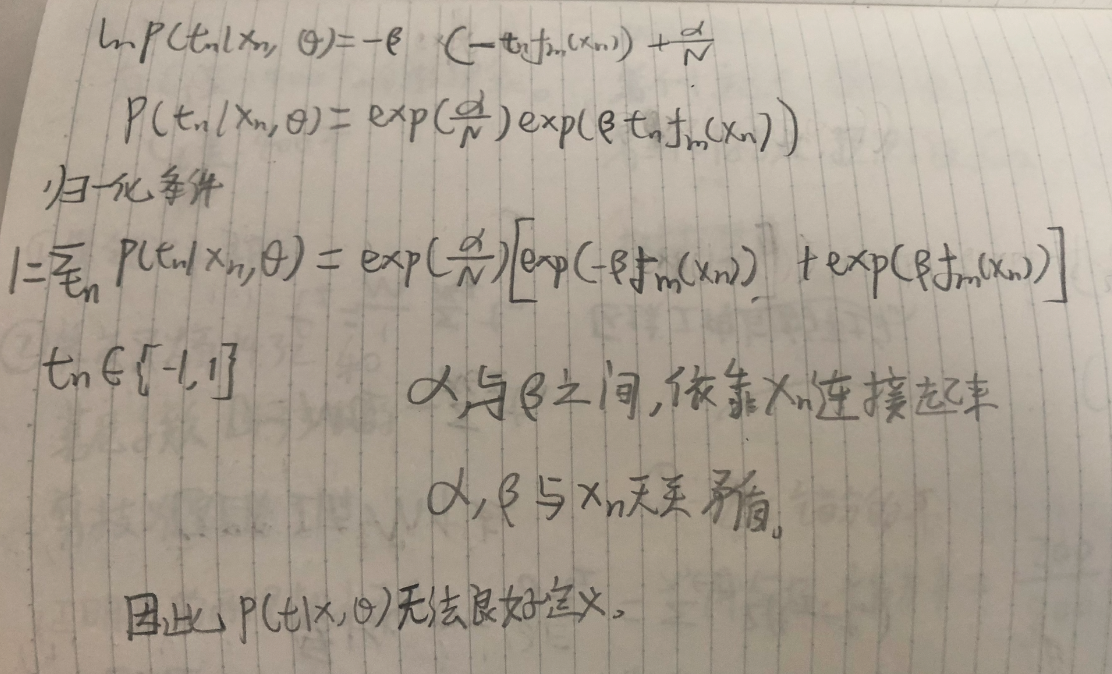 ln P(tn|xn, θ) = -β (-tn fm(xn)) + α/N
P(tn|xn, θ) = exp(α/N) exp(β tn fm(xn))
归一化条件
1 = Σtn P(tn|xn, θ) = exp(α/N) [exp(-β fm(xn)) + exp(β fm(xn))]
tn ∈ {-1, 1}
α与β之间,依靠xn连接起来
α, β与xn无关矛盾。
因此 P(t|x, θ) 无法良好定义。